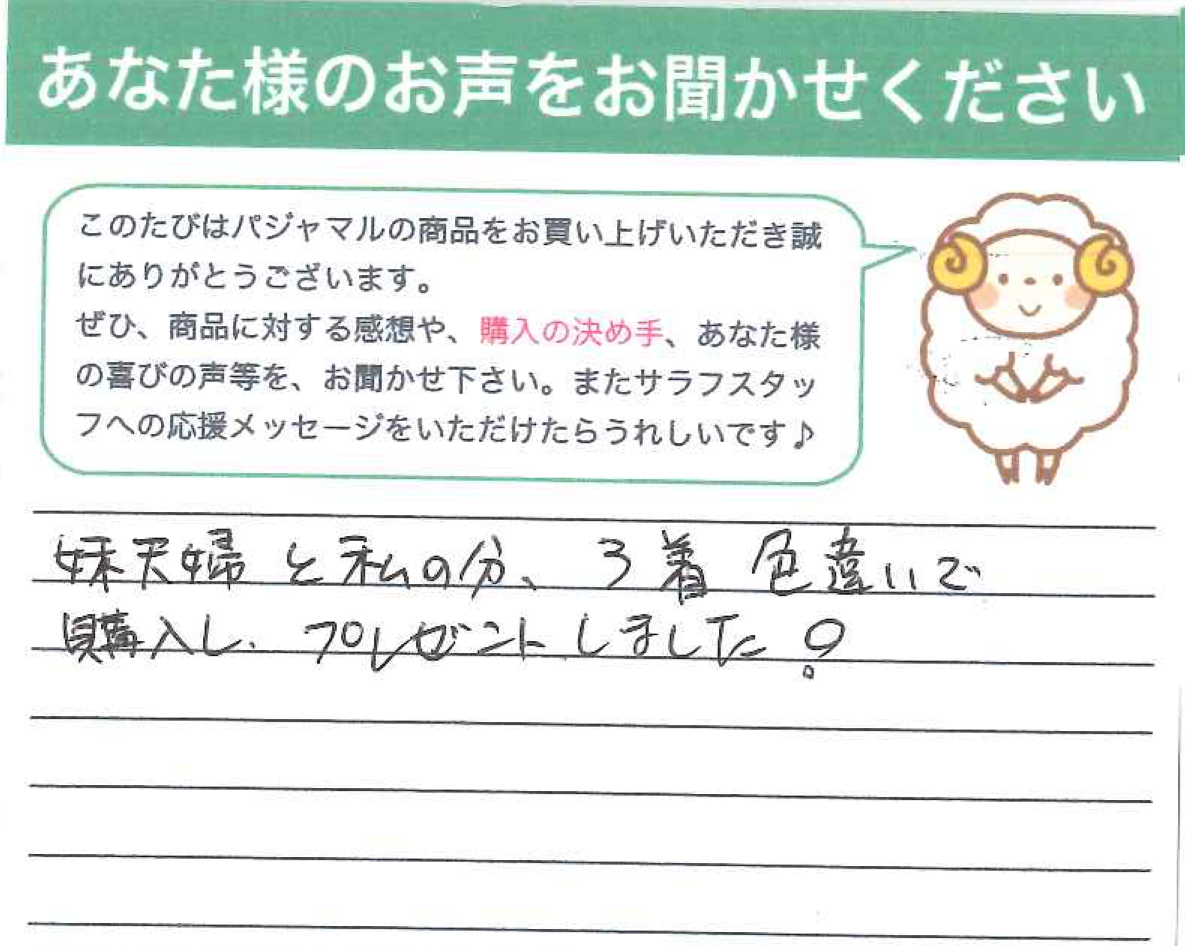 あなた様のお声をお聞かせください
このたびはパジャマルの商品をお買い上げいただき誠
にありがとうございます。
ぜひ、商品に対する感想や、購入の決め手、あなた様
の喜びの声等を、お聞かせ下さい。またサラフスタッ
フへの応援メッセージをいただけたらうれしいです♪
妹夫婦と私の分、3着 色違いで
購入し、プレゼントしました!